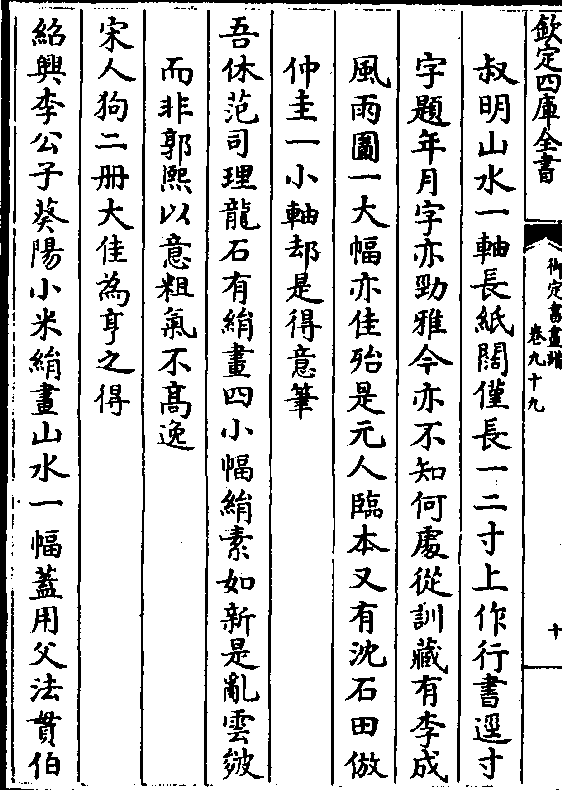 欽定四庫全書
御定書畫譜
卷九十九
十
叔明山水一軸長紙闊僅長一二寸上作行書逕寸
字題年月字亦勁雅今亦不知何處從訓藏有李成
風雨圖一大幅亦佳殆是元人臨本又有沈石田倣
仲圭一小軸却是得意筆
吾休范司理龍石有絹畫四小幅絹素如新是亂雲皴
而非郭熙以意粗氣不髙逸
宋人狗二册大佳為亨之得
紹興李公子葵陽小米絹畫山水一幅葢用父法貫伯